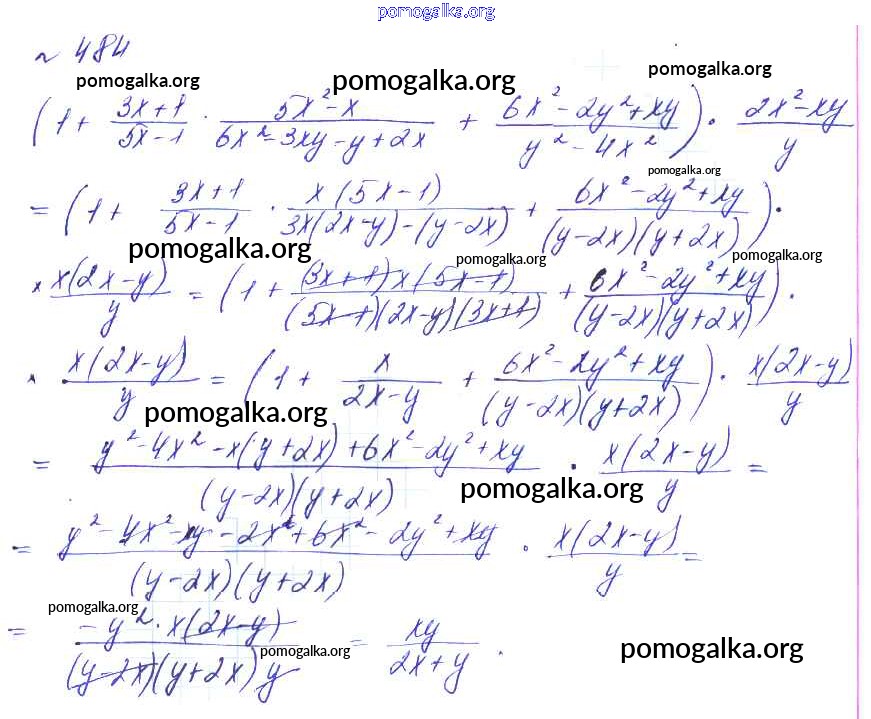 pomogalka.org
№ 484
pomogalka.org pomogalka.org pomogalka.org
(1 + (3x+1)/(5x-1) · (5x²-x)/(6x²-3xy-y+2x) + (6x²-2y²+xy)/(y²-4x²)) · (2x²-xy)/y
pomogalka.org
= (1 + (3x+1)/(5x-1) · (x(5x-1))/(3x(2x-y)-(y-2x)) + (6x²-2y²+xy)/((y-2x)(y+2x))) ·
pomogalka.org pomogalka.org pomogalka.org
× (x(2x-y))/y = (1 + ((3x+1)x(5x-1))/((5x-1)(2x-y)(3x+1)) + (6x²-2y²+xy)/((y-2x)(y+2x))) ·
× (x(2x-y))/y = (1 + x/(2x-y) + (6x²-2y²+xy)/((y-2x)(y+2x))) · (x(2x-y))/y
pomogalka.org
= (y²-4x²-x(y+2x)+6x²-2y²+xy)/((y-2x)(y+2x)) · (x(2x-y))/y =
pomogalka.org
= (y²-4x²-xy-2x²+6x²-2y²+xy)/((y-2x)(y+2x)) · (x(2x-y))/y =
pomogalka.org
= (-y²·x(2x-y))/((y-2x)(y+2x)y) = xy/(2x+y) .
pomogalka.org pomogalka.org